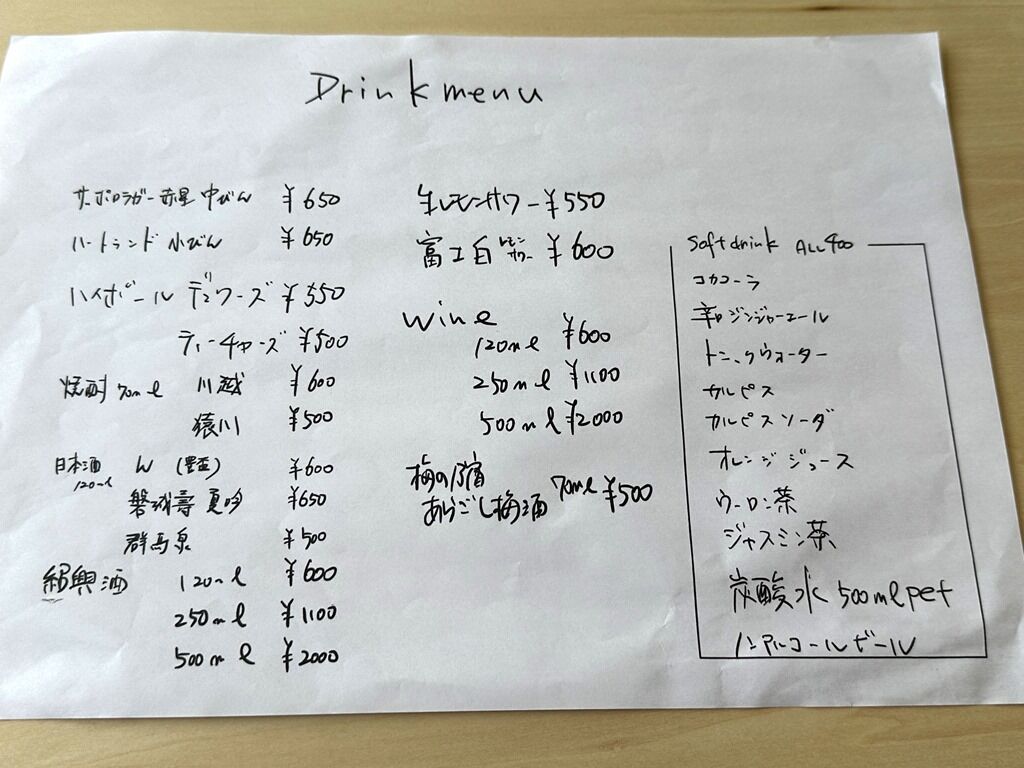 Drink menu
サッポロラガー赤星 中びん ¥650
ハートランド 小びん ¥650
ハイボール デュワーズ ¥550
ティーチャーズ ¥500
焼酎 70ml 川越 ¥600
猿川 ¥500
日本酒 120ml ん (豊盃) ¥600
磐城壽 夏吟 ¥650
群馬泉 ¥500
紹興酒 120ml ¥600
250ml ¥1100
500ml ¥2000
生レモンサワー ¥550
富士白 レモンサワー ¥600
wine
120ml ¥600
250ml ¥1100
500ml ¥2000
梅の宿
あらごし梅酒 70ml ¥500
Soft drink ALL400
コカコーラ
辛ジンジャーエール
トニックウォーター
カルピス
カルピスソーダ
オレンジジュース
ウーロン茶
ジャスミン茶
炭酸水 500ml pet
ノンアルコールビール